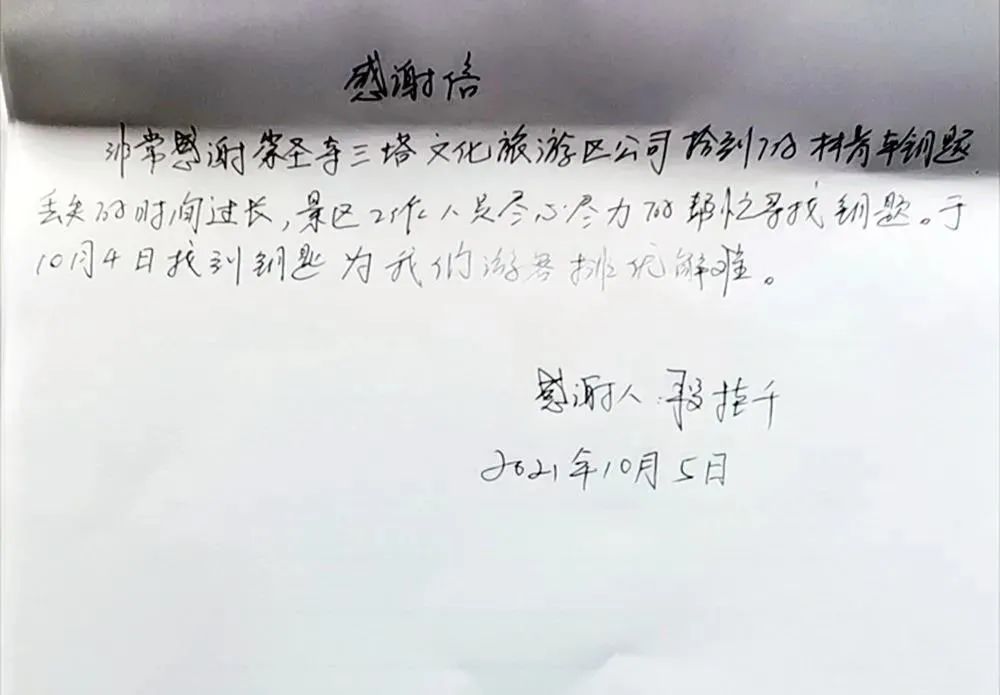 感谢信
非常感谢崇圣寺三塔文化旅游区公司拾到了的车钥匙
丢失的时间过长，景区工作人员尽心尽力的帮忙寻找钥匙。于
10月4日找到钥匙为我们游客排忧解难。
感谢人：段
2021年10月5日